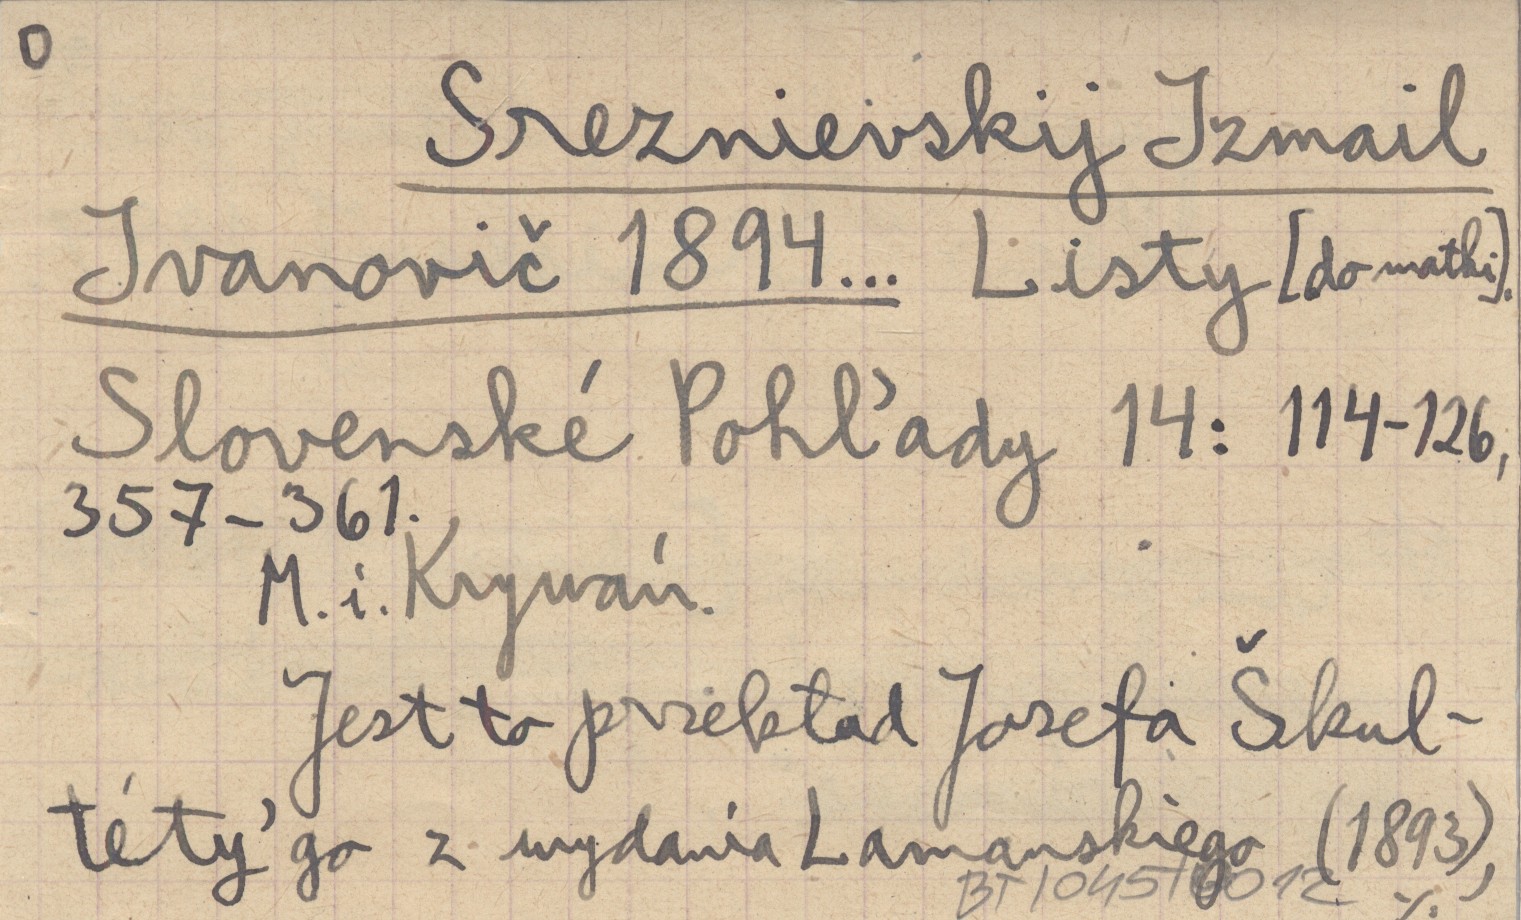 0
Sreznievskij Izmail
Ivanovič 1894... Listy [do matki].
Slovenské Pohl'ady 14: 114-126,
357-361.
M. i. Krywań.
Jest to przekład Josefa Škul-
téty'go z wydania Lamanskiego (1893),
BT/045/6012
./.